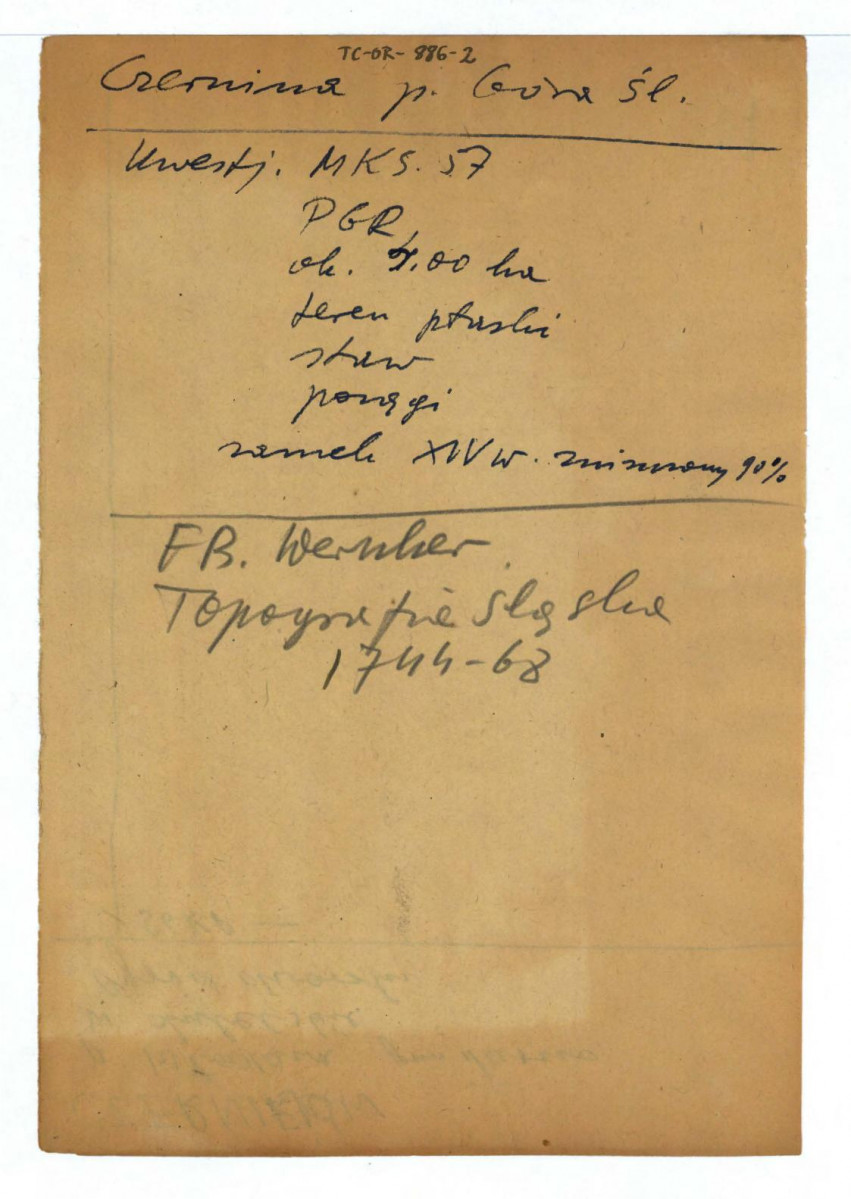 TC-OR-886-2
Czernina p. Góra Śl.
Kwestj. MKS. 57
PGR
ok. 4.00 ha
teren płaski
staw
posągi
zamek XIV w. zniszczony 90%
F.B. Wernher
Topografia Śląska
1744-68